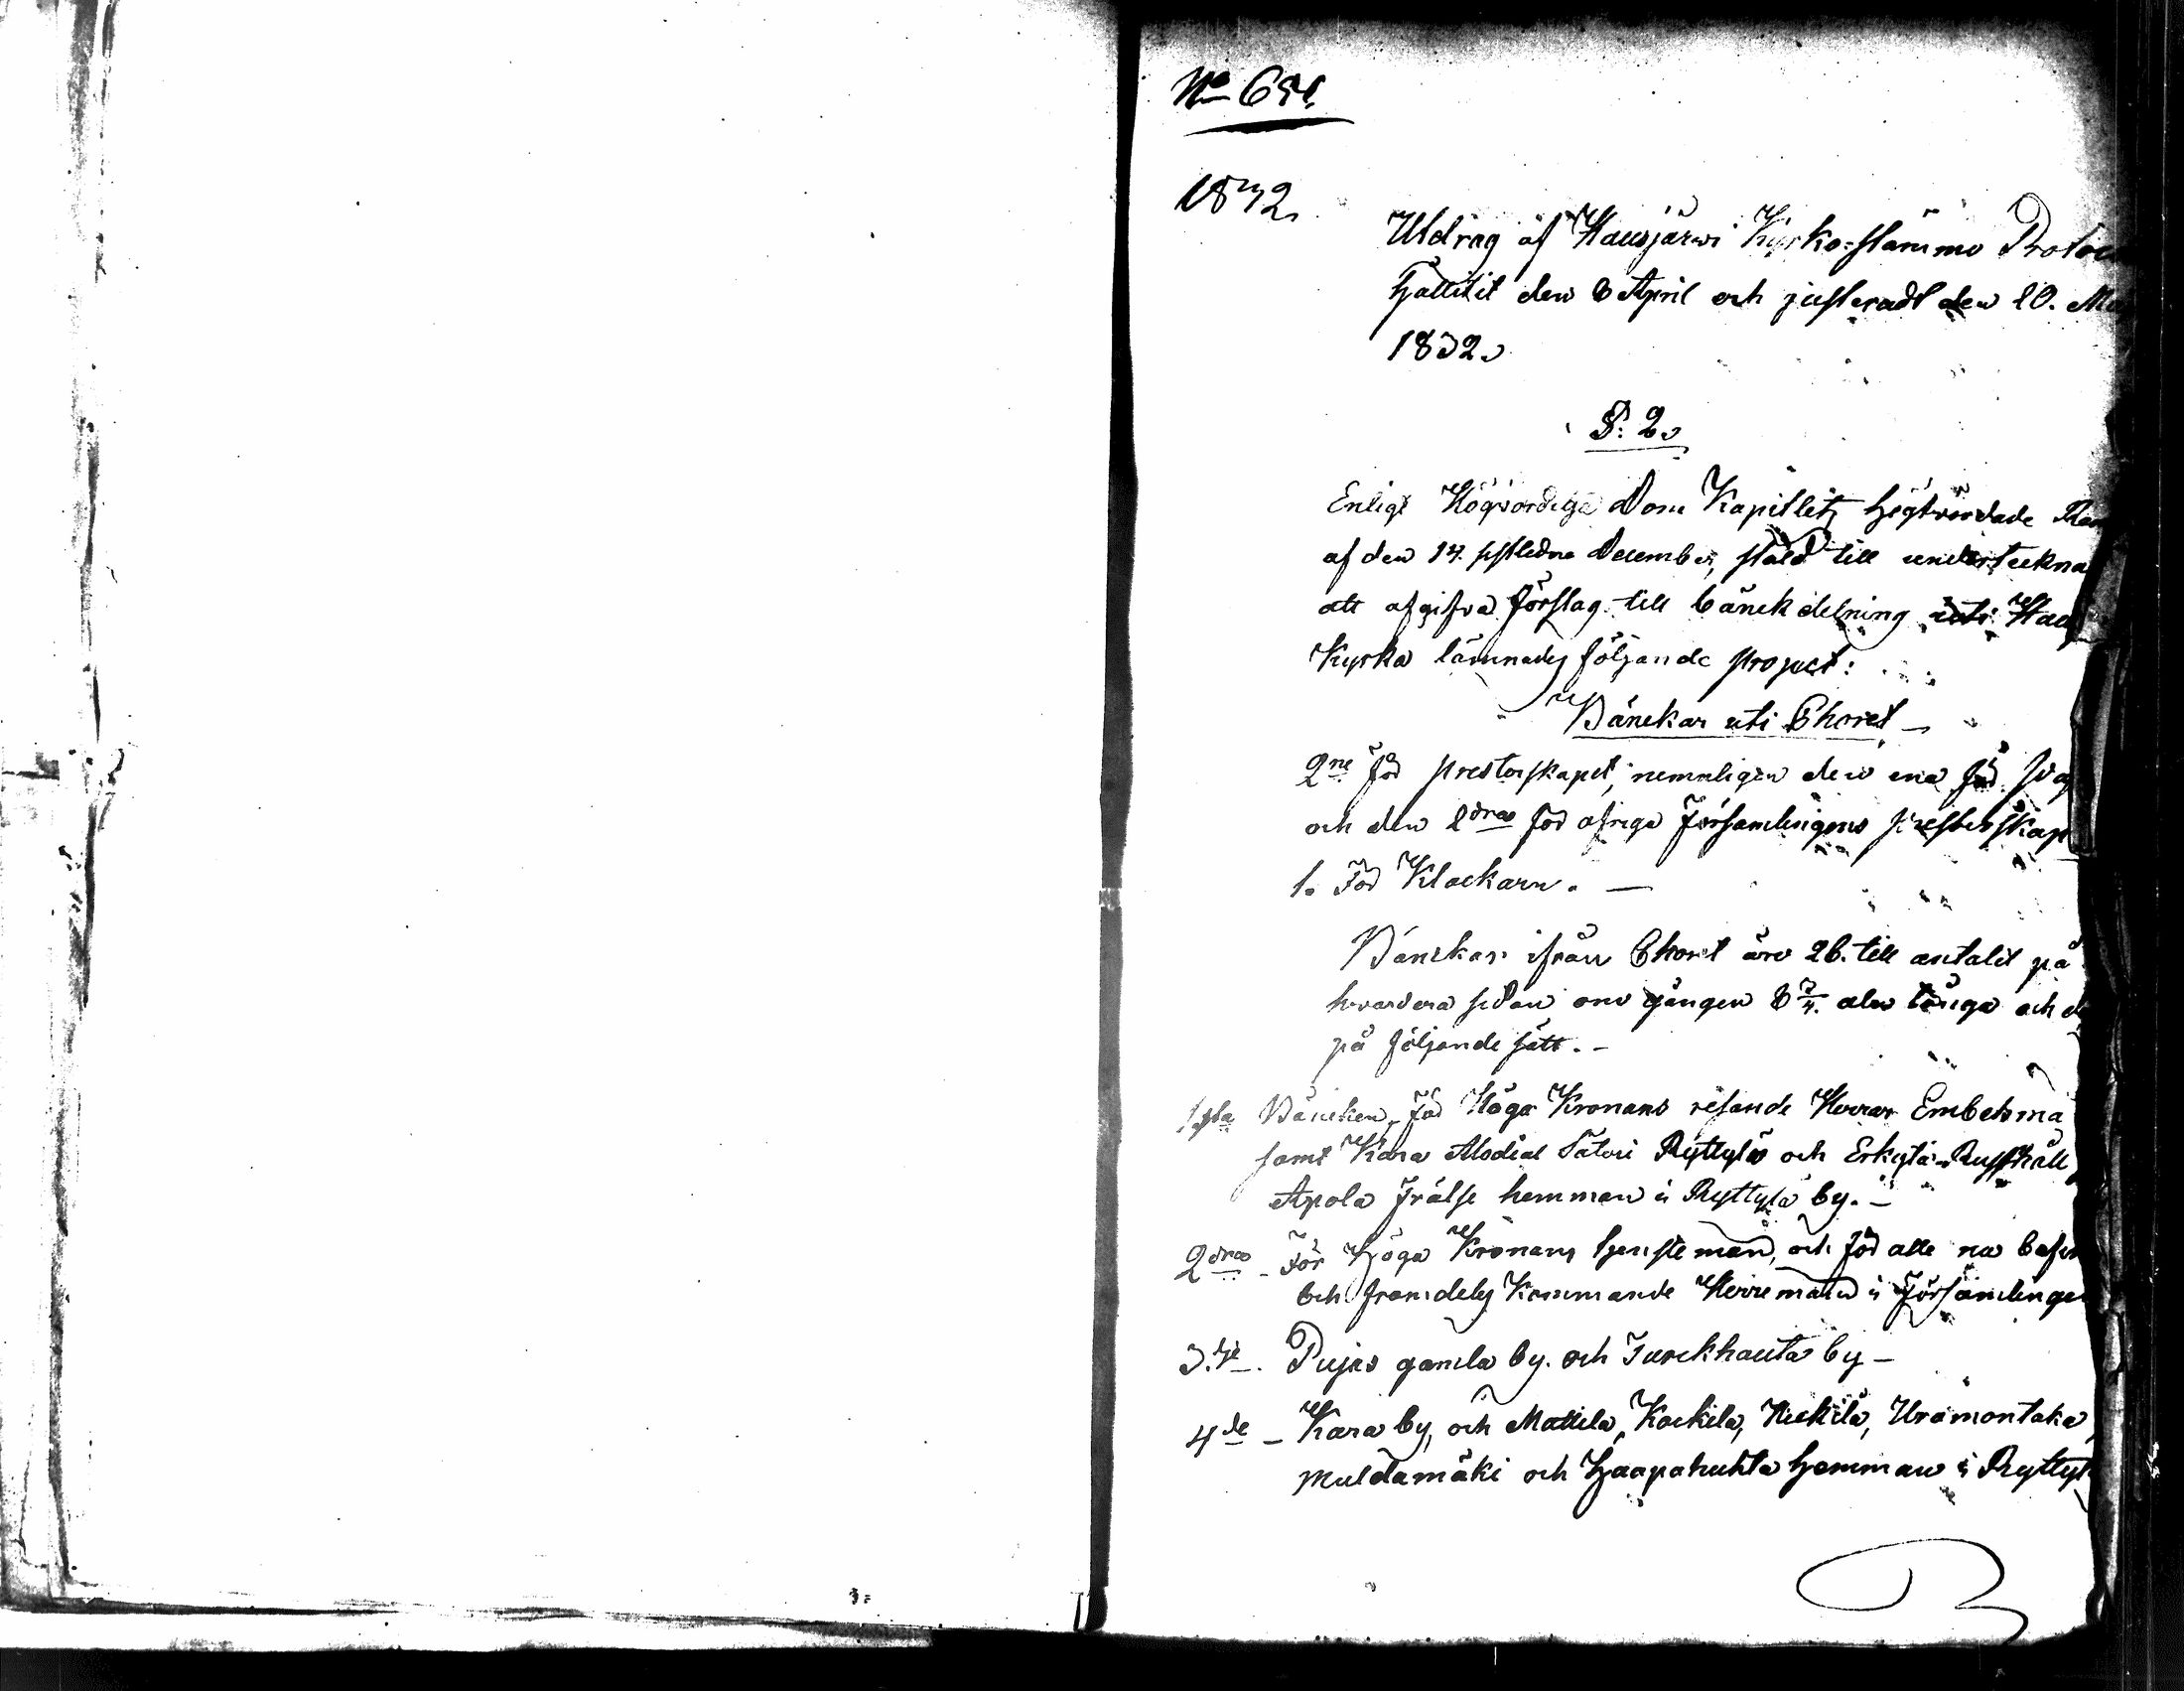 No 651.
1832
Utdrag af Hausjärwi Kyrko-stämmo Protoc
hållitit den 8 April och justeradt den 20. Ma
1832.
§: 2.
Enligt Högvördiga Dom Kapitlets högtvördade Rem
af den 14. sistledne December, stäld till undertekna
att afgifva förslag till bänckdelning uti Hau
Kyrka lämnades följande project:
Bänckar uti Choret
2ne för presterskapet, nemnligen den ena för
och den 2dra för öfriga Församlingens presterskap
1. För Klockarn.
Bänckar ifrån Choret äro 26. till antalet på
hvardera sidan om gången alnr långa och
på följande sätt.
1sta Bäncken, för Höga Kronans resande Herrar Embetsmä
samt Kara Alodial Säteri Ryttylä och Erkylä Rusthåll
Apola Frälse hemman i Ryttylä by.
2dra För Höga Kronans tjensteman, och för alle nu befin
och framdeles Kommande Herremän i Församlingen
3.dje Pujas gamla by. och Turckhauta by
4de Kara by, och Mattila, Kockila, Heikilä, Uramontaka,
Muldamäki och Haapahuhta Hemman i Ryttyl